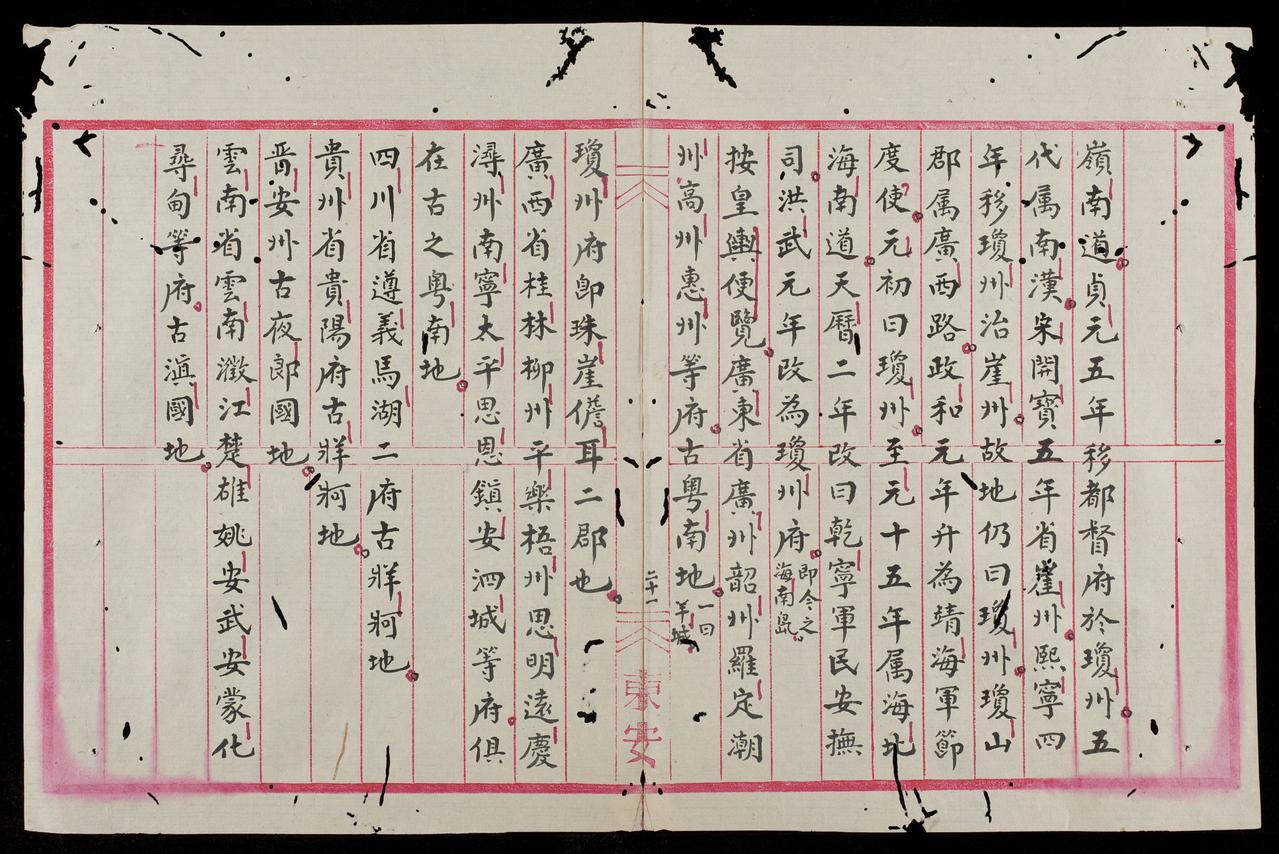 嶺南道貞元五年移都督府於瓊州五
代属南漢宋開寶五年省崖州熙寧四
年移瓊州治崖州故地仍曰瓊州瓊山
郡属廣西路政和元年升為靖海軍節
度使元初曰瓊州至元十五年属海北
海南道天曆二年改曰乾寧軍民安撫
司洪武元年改為瓊州府即今之海南島
按皇輿便覽廣東省廣州韶州羅定潮
州高州惠州等府古粤南地一曰羊城
二十一
東安
瓊州府即珠崖儋耳二郡也
廣西省桂林柳州平樂梧州思明遠慶
潯州南寧太平思恩鎮安泗城等府俱
在古之粤南地
四川省遵義馬湖二府古牂牁地
貴州省貴陽府古牂牁地
晋安州古夜郎國地
雲南省雲南澂江楚雄姚安武安蒙化
尋甸等府古滇國地